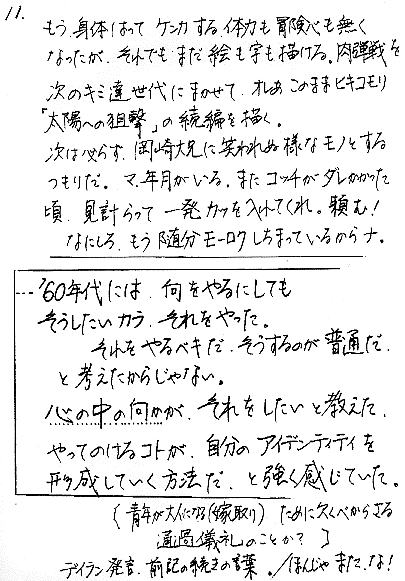 11.
もう、身体はって ケンカする 体力も 冒険心も 無く
なったが、それでも まだ 絵も字も描ける。肉弾戦を
次のキミ達世代にまかせて、オレあ このまま ヒキコモリ
「太陽への狙撃」の続編を描く。
次は必らず、岡崎大兄に笑われぬ様なモノとする
つもりだ。マ、年月がいる。また コッチが ダレかかった
頃、見計らって 一発 カツを入れてくれ。頼む!
なにしろ、もう 随分 モーロクしちまっているからナ。
…'60年代には、何をやるにしても
そうしたいカラ、それをやった。
それをやるベキだ、そうするのが 普通だ、
と考えたからじゃない。
心の中の何かが、それをしたいと教えた。
やってのけるコトが、自分の アイデンティティを
形成していく方法だ、と強く感じていた。
(青年が大人になる(嫁取り) ために欠くべからざる
通過儀礼のことか?)
ディラン発言、前記の続きの言葉。/ほんじゃ また、な!